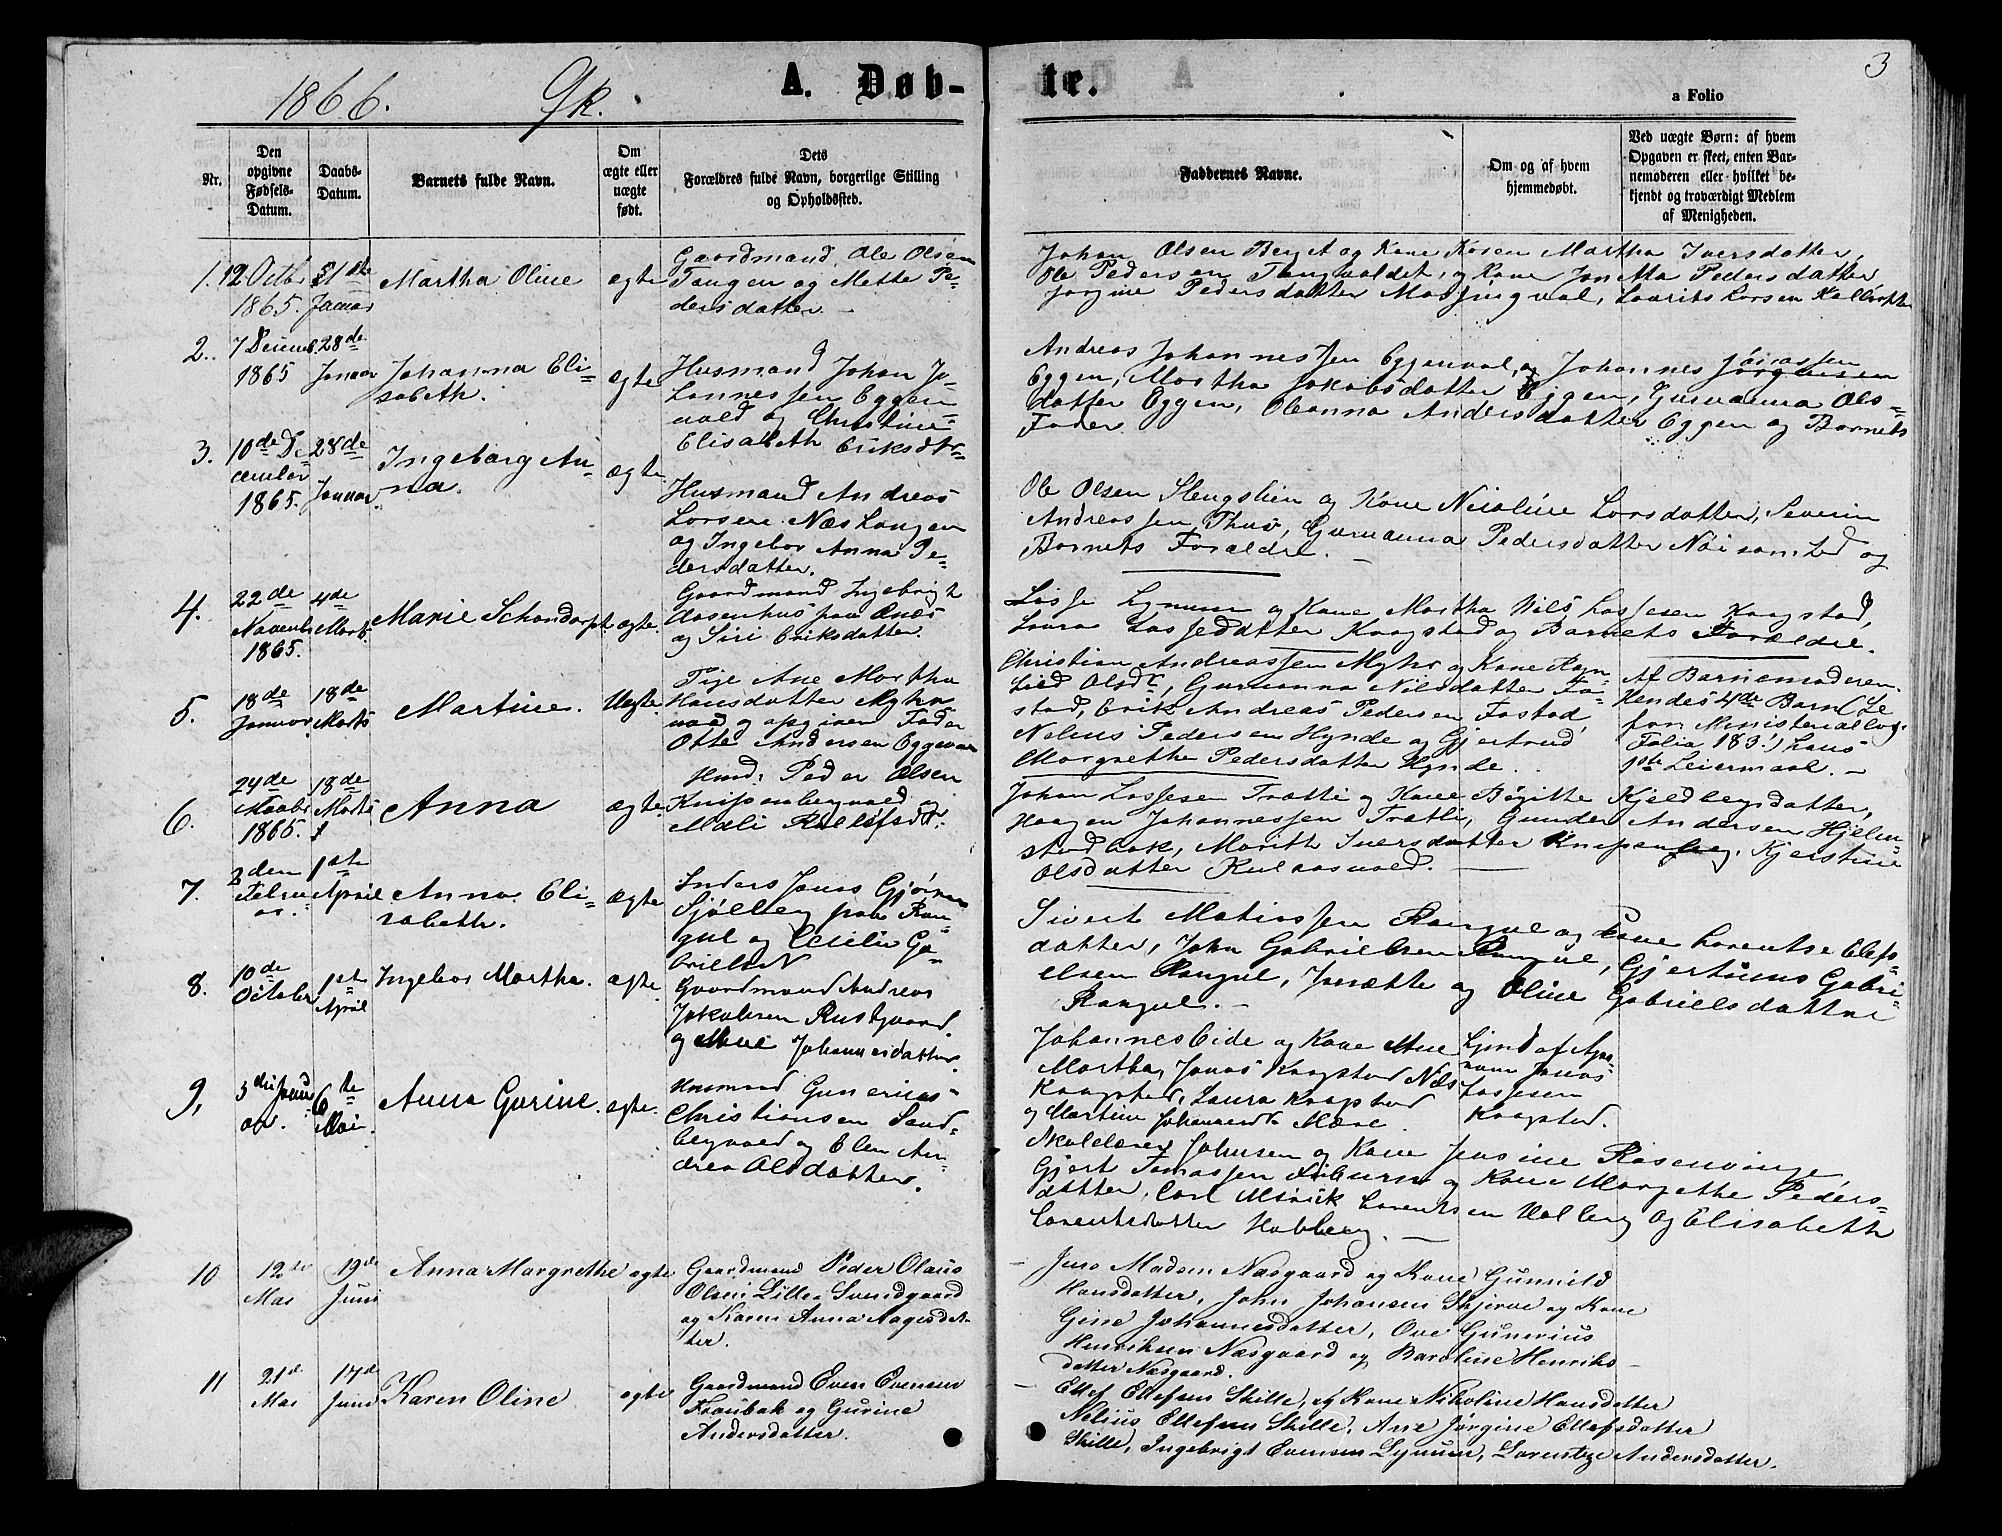 1866. Qk. A. Døb-
te. 3
a Folio
Nr.
Den
opgivne
Fødsels-
Datum.
Daabs-
Datum.
Barnets fulde Navn.
Om
ægte eller
uægte
født.
Dets
Forældres fulde Navn, borgerlige Stilling
og Opholdssted.
Faddernes Navne.
Om og af hvem
hjemmedøbt.
Ved uægte Børn: af hvem
Opgaven er skeet, enten Bar-
nemoderen eller hvilket be-
kjendt og troværdigt Medlem
af Menigheden.
1.
12 Octbr
1865.
21de
Januar
Martha Oline
ægte
Gaardmand Ole Olsen
Tangen og Mette Pe-
dersdatter.
Johan Olsen Berget og Kone Karen Martha Iversdatter,
Ole Pedersen Tangvaldet, og Kone Pedersdatter
Jørgine Pedersdatter Laurits Larsen
2.
7 Decemb.
1865
28de
Januar
Johanna Eli-
sabeth.
ægte
Husmand Johan Jo-
hannessen Eggen-
vald og Christine
Elisabeth Eriksdtr
Andreas Johannessen Eggenval, og Johannes
Eggen, Martha Jakobsdatter Eggen, Guruanna Ols-
datter Eggen, Oleanna Andersdatter Eggen og Barnets
Fader
3.
10de De-
cember
1865.
28de
Januar.
Ingeborg An-
na.
ægte
Husmand Andreas
Larsen Næshangen
og Ingebor Anna Pe-
dersdatter.
Ole Olsen Slengslien og Kone Nicoline Larsdatter, Severin
Andreassen Guruanna Pedersdatter og
Barnets Forældre.
4.
22de
Novemb
1865.
4de
Marts
Marie Schondorph.
ægte.
Gaardmand Ingebrigt
paa
og Siri Eriksdatter.
Lasse Lynum og Kone Martha Nils Lassesen Kaagstad,
Laura Lassedatter Kaagstad og Barnets Forældre.
5.
18de
Januar
18de
Marts
Martine.
Uægte.
Pige Ane Martha
Hansdatter Myhr
vald og opgiven Fader
Otte Andersen Eggevan
Christian Andreassen Myhr og Kone Ragn-
hild Olsdr, Guruanna Nilsdatter Fa-
stad, Erik Andreas Pedersen Fostad
Nelius Pedersen Hynde og Gjertrud
Margrethe Pedersdatter Hynde.
Af Barnemoderen.
Hendes 4de Barn (Se
forr Ministerialbog
Folio 183.) Hans
1ste Leiermaal.
6.
24de
1865.
18de
Marts
Anna
ægte.
Husd: Peder Olsen
Knipenbergvald og
Mali
Johan Lassesen Trætli og Kone Birgitte Kjeldbergsdatter,
Haagen Johannessen Trætli, Gunder Andersen Hjelm-
stadbak, Marith Iversdatter Knipenberg, Kjerstine
Olsdatter Kulaasvald.
7.
2den
Februar
1ste
April
Anna Eli-
sabeth.
ægte
Inders Jonas
Sjølberg paa Ran-
gul og Cecilie Ga-
brielsN
Sivert Matiassen Rangul og Kone Lorentse Elefs-
datter, John Gabrielsen Rangul, Gjertinus Gabri-
elsen Rangul, Janætte og Oline Gabrielsdatter
Rangul.
8.
10de
October
1ste
April
Ingebor Martha.
ægte
Gaardmand Andreas
Jakobsen Rustgaard
og Johannesdatter.
Johannes Eide og Kone Ane
Martha, Jonas Kaagstad Nils
Kaagstad, Laura Kaagstad
og Martine Johannesdtr Mære.
Hjemd af
Jonas
Lassesen
Kaagstad.
9.
5 Janu
ar.
6te
Mai.
Anna Gurine.
ægte.
Husmand Gunerius
Christiansen Sand-
bergvald og Elen An-
drea Olsdatter.
Skolelærer Johnsen og Kone Jensine Rosenvinge,
Gjert Tomassen og Kone Margethe Peders-
datter, Carl Lorentsen Valberg og Elisabeth
Lorentsdatter Hobberg.
10
12te
Mai
19de
Juni
Anna Margrethe
ægte
Gaardmand Peder Olaus
Olsen Lille Svendgaard
og Karen Anna Aagesdat-
ter.
Jens Madsen Næsgaard og Kone Gunnild
Hansdatter, John Johansen Skjerve og Kone
Gine Johannesdatter, Ove Gunerius
Henriksen Næsgaard og Baroline Henriks-
datter Næsgaard.
11
21de
Mai
17de
Juni
Karen Oline
ægte
Gaardmand Even Evensen
og Gurine
Andersdatter.
Ellef Ellefsen Skille, og Kone Nikoline Hansdatter
Nelius Ellefsen Skille, Ane Jørgine Ellefsdatter
Skille, Ingebrigt Evensen Lynum, Andersdatter.